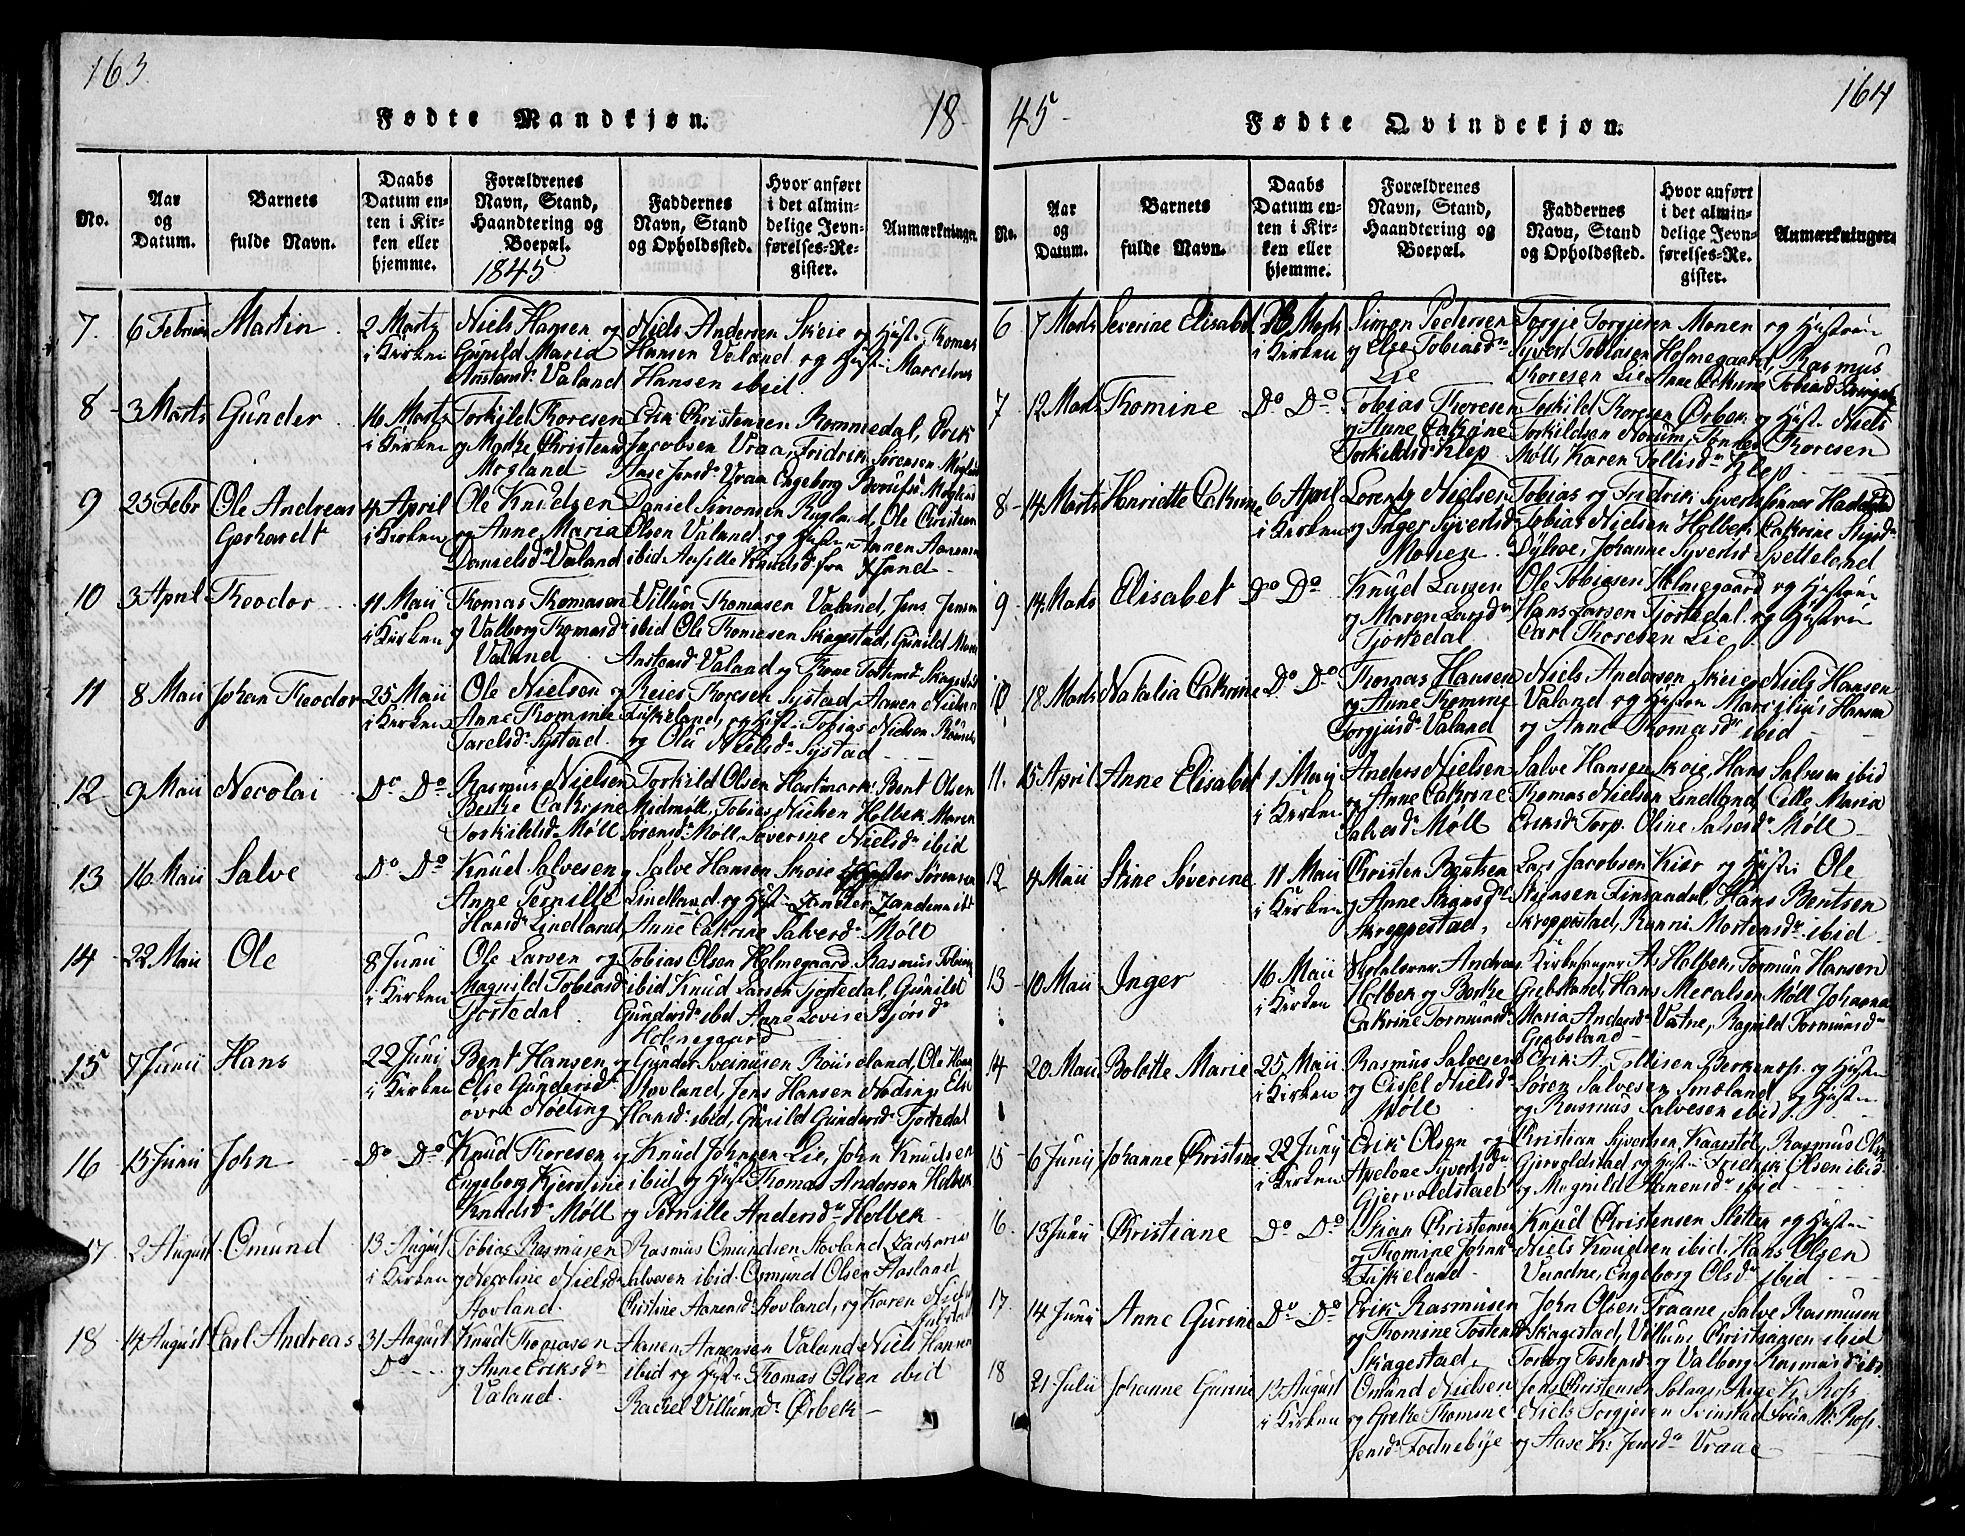 163.
Fødte Mandkjøn.
18
No.
Aar og Datum.
Barnets fulde Navn.
Daabs Datum enten i Kirken eller hjemme.
Forældrenes Navn, Stand, Haandtering og Boepæl.
1845
Faddernes Navn, Stand og Opholdssted.
Hvor anført i det almindelige Jevnførelses-Register.
Anmærkninger.
7. 6 Februar Martin 2 Marty i Kirken
Niels Hansen og
Gunild Maria
Anstensd. Valand
Niels Andersen Skeie og Hust. Thomas
Hansen Valand og Hust. Marcelius
Hansen ibid.
8 3 Marts Gunder 16 Marty i Kirken
Torkild Thoresen
og Marthe Christensd
Mogland
Erik Christensen Rommedal, Erik
Jacobsen Vraa, Fridrik Sørensen Mogland
Aase Jensd. Vraa Engeborg
9 23 Febr Ole Andreas Gerhardt 4 April i Kirken
Ole Knudsen
og Anne Maria
Danielsd. Valand
Daniel Simonsen Rugland, Ole Christian
Olsen Valand og Hustru Annen Aanensen
ibid Knudsd. fra Xsand
10 3 April Theodor 11 Maii i Kirken
Thomas Thomasen
og Valborg Thomasd.
Valand
Villum Thomasen Valand, Jens Jensen
ibid Ole Thomesen Skagestad, Gunild Maria
Anstensd. Valand og Skagestad
11 8 Maii Johan Theodor 25 Maii i Kirken
Ole Nielsen og
Anne Thomine
Tarelsd. Systad
Reier Thoresen Systad, Aanen Nielsen
Fiskeland, og Hust. Tobias Nielsen
og Olu Nielsd. Systad
12 9 Maii Necolai D° D°
Rasmus Nielsen
Berthe Cathrine
Torkildsd. Møll
Torkild Olsen Hartmark, Bent Olsen
Midmøll, Tobias Nielsen Holbek Maren
Sørensd. Møll Severine Nielsd. ibid
13 16 Maii Salve D° D°
Knud Salvesen
Anne Pernille
Hansd. Lindland
Salve Hansen Skoie Sørensen
Lindland og Hust.
Anne Cathrine Salvesd. Møll
14 22 Maii Ole 8 Junii i Kirken
Ole Larsen og
Magnild Tobiasd.
Tjostedal
Tobias Olsen Holmegaard. Rasmus
ibid Knud Larsen Tjostedal, Gunild
Gundersd. ibid Anne Lovise Bjørsd.
Holmegaard
15 7 Junii Hans 22 Junii i Kirken
Bent Hansen og
Else Gundersd.
øvre Nøding
Gunder Svenusen Rouseland, Ole Hansen
Stovland, Jens Hansen Nøding, Else
Hansd. ibid, Gunild Gundersd. Tjostedal
16 15 Junii John D° D°
Knud Thoresen og
Engeborg Kjerstine
Knudsd. Møll
Knud Johnsen Lie, John Knudsen
ibid og Hust. Thomas Andersen Holbek
og Pernille Andersd. Holbek
17 2 August Omund 13 August i Kirken
Tobias Rasmusen
og Necoline Nielsd.
Stovland.
Rasmus Omundsen Stovland Zacharias
Salvesen ibid. Osmund Olsen Aasland
Christine Aanensd. Stovland, og Karen Niels
18 14 August Carl Andreas 31 August D°
Knud Thomasen
og Anne Eriksd.
Valand.
Aanen Aanensen Valand Niels Hansen
ibid og Hust. Thomas Olsen ibid
Rachel Villumsd. Ørbek
164
45
Fødte Qvindekjøn.
No.
Aar og Datum.
Barnets fulde Navn.
Daabs Datum enten i Kirken eller hjemme.
Forældrenes Navn, Stand, Haandtering og Boepæl.
Faddernes Navn, Stand og Opholdssted.
Hvor anført i det almindelige Jevnførelses-Register.
Anmærkninger
6 7 Marts Severine Elisabet Marts i Kirken
Simon Pedersen
og Else Tobiasd.
Lie
Torgje Torgjersen Monen og Hustrue
Syvert Tobiasen Holmegaard, Rasmus
Thoresen Lie Anne Cathrine Tobiasd
7 12 Marts Thomine D° D°
Tobias Thoresen
og Anne Cathrine
Torkildsd. Klep
Torkild Thoresen Ørbek og Hust. Niels
Torkildsen Norum, Thoresen
Møll, Karen Tollisd. Klep
8 14 Marts Henriette Cathrine 6 April i Kirken
Lorents Nielsen
og Inger Syvertsd.
Monen
Tobias og Fredrik Syvertsønner
Tobias Nielsen Holbek, Cathrine Stigsd.
Dyhoe, Johanne Syvertsd. Svetteland
9 14 Marts Elisabet D° D°
Knud Larsen
og Maren Larsd.
Tjostedal
Ole Tobiasen Holmegaard og Hustrue
Hans Larsen Tjostedal og Hustrue
Carl Thoresen Lie
10 18 Marts Natalia Cathrine D° D°
Thomas Hansen
og Anne Thomine
Torgjusd. Valand
Niels Andersen Skeie, Niels Hansen
Valand og Hustru Marcelius Hansen
og Anne Thomasd. ibid
11. 15 April Anne Elisabet 1 Maij i Kirken
Anders Nielsen
og Anne Cathrine
Salvesd. Møll
Salve Hansen Skoie, Hans Salvesen ibid
Thomas Nielsen Lindland, Cille Maria
Eriksd. Torp. Oline Salvesd. Møll
12 4 Maii Stine Severine 11 Maii i Kirken
Christen Bentsen
og Anne Stignsd.
Skroppestad,
Lars Jacobsen Kiær og Hust: Ole
Steensen Finsandal, Hans Bentsen
Skroppestad, Ranni Mortensd. ibid
13 10 Maii Inger 16 Maii i Kirken
Skolelærer Andreas
Holbek og Berthe
Cathrine Tormunsd.
Kirkesanger A. Holbek, Tormun Hansen
Grebsland, Hans Mecalsen Møll Johanna
Maria Andersd. Vatne, Ragnild Tormunsd.
Grebsland
14 20 Maii Bolette Marie 25 Maii i Kirken
Rasmus Salvesen
og Cissel Nielsd.
Møll
Erik A. Tollisen Berkenes og Hustru
Søren Salvesen Smæland og Hustru
og Rasmus Salvesen ibid
15 6 Junij Johanne Christine 22 Junij i Kirken
Erik Olsen og
Apelone Syvertsd.
Gjervoldstad
Christian Syvertsen Kaarstøl, Rasmus Olsen
Gjervoldstad og Hust. Fredrik Olsen ibid
og Magnild Aanensd. ibid
16. 13 Junii Christiane D° D°
Stian Christensen
og Thomine Johnsd.
Fiskeland
Knud Christensen Sletten og Hustru
Niels Knudsen ibid, Hans Olsen
Verudne, Engeborg Olsd. ibid
17. 14 Junii Anne Gurine D° D°
Erik Rasmusen
og Thomine Tostensd.
Skagestad,
John Olsen Fraane, Salve Rasmusen
Skagestad, Villum Christiansen ibid
Torborg Tostensd. og Valborg Rasmusd. ibid.
18 21 Julii Johanne Gurine 13 August i Kirken
Omund Nielsen
og Grethe Thomine
Jensd. Fodnebye
Jens Christensen Solaas, K. Ross
Niels Torgjersen Svinstad Fru M. Ross.
og Aase K. Jensd. Vraae